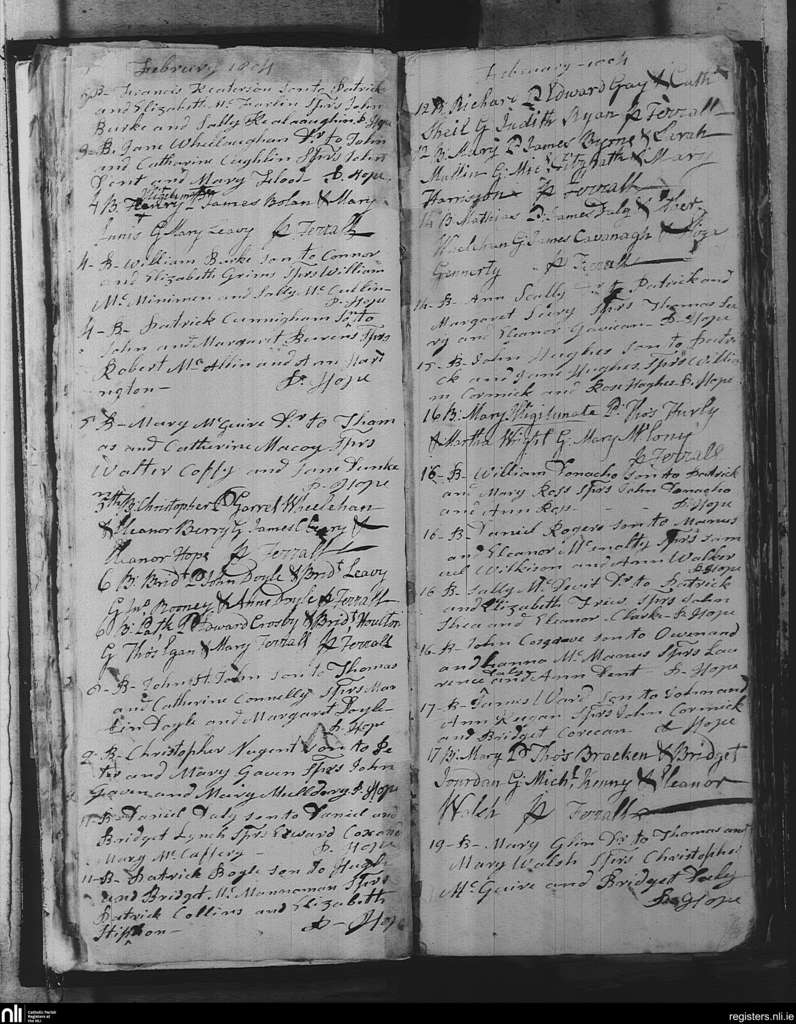 February 1804
2-B- Francis Keaterson son to Patrick
and Elizabeth Mc Sprs John
Burke and Sally
3-B- Jane Wheelaughan Dr to John
and Catharine Cughlin Sprs John
Dent and Mary Flood P. Hope
4 B James Bolan & Mary
Innis G Mary Leavy P Ferrall
4-B- William Burke son to Connor
and Elizabeth Grims Sprs William
Mc Minimen and Sally Mc Cullin-
P. Hope
4-B- Patrick Cunnigham Sn to
John and Margaret Sprs
Robert Mc Allin and Ann Harri
ngton- P. Hope
5 B- Mary Mc Guire Dr to Thom
as and Catherine Macoy Sprs
Walter Coffy and Jane
P. Hope
5th B. Christopher P Garret Wheelehan
& Eleanor Berry G James Cleary &
Eleanor Hope P Ferrall
6 B: Bridt P John Doyle & Bridt Leavy
G Jno Rooney & Anne Doyle P Ferrall
6 B: P Edward Crosby & Bridt
G Thos Egan & Mary Ferrall P Ferrall
B- John St John son to Thomas
and Catherine Connelly Sprs Mar
tin Doyle and Margaret Doyle-
P. Hope
9-B- Christopher Nugent Son to Pe
ter and Mary Gaven Sprs John
Gaven and Mary Mulldory P. Hope
B- Daniel Daly son to Daniel and
Bridget Lynch Sprs Edward
Mary Mc Caffery- P. Hope
11-B- Patrick Boyle son to Hugh
and Bridget Mc Mannaman Sprs
Patrick Collins and Elizabeth
P- Hope
February - 1804
12 B: Richard P Edward Gay & Cath
Sheil G Judith Ryan P Ferrall
12 B: Mary P James Byrne & Sarah
Mallin G Mic Fitzpath & Mary
Harrison P Ferrall
14 B Mathias P James Daly & Esther
Wheelehan G James Cavanagh & Eliza
Gennerty P Ferrall
14-B- Ann Scally Dr to Patrick and
Margaret Sprs Thomas
ry and Eleanor P. Hope
15-B- John Hughes son to Patri
ck and Jane Hughes Sprs Willia
m Cormick and Rose Hughes P. Hope
16 B: Mary Illigitimate P. Thos Furly
& Martha Wight G: Mary
P Ferrall
16-B- William Donacho son to Patrick
and Mary Ross Sprs John Donagho
and Ann Rose - - P. Hope
16-B- Daniel Rogers son to Manus
and Eleanor Mc nalty Sprs Sam
uel Wilkison and Ann Walker
P. Hope
16 B- Sally Mc Dr to Patrick
and Elizabeth Sprs John
Shea and Eleanor Clarke- P. Hope
16-B- John Cosgrave son to Owen and
and Hanna Mc Manus Sprs Lau
rence Daly and Ann Dent P. Hope
17-B- James Ward son to John and
Ann Sprs John Cormick
and Bridget Corecan P Hope
17 B: Mary P Thos Bracken & Bridget
Jourdan G: Michl Kenny & Eleanor
Walsh P Ferrall
19-B- Mary Glin Dr to Thomas and
Mary Walsh Sprs Christopher
Mc Guire and Bridget Daly
P. Hope
nli Catholic Parish Registers at the NLI
registers.nli.ie